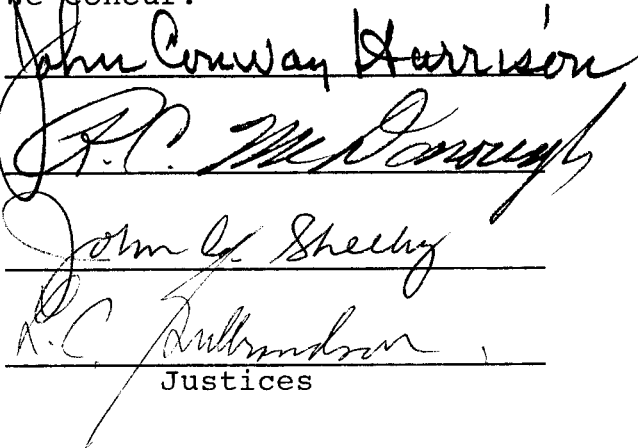 We Concur:
John Conway Harrison
R.C. McDonough
John C. Sheehy
L.C. Gulbrandson
Justices